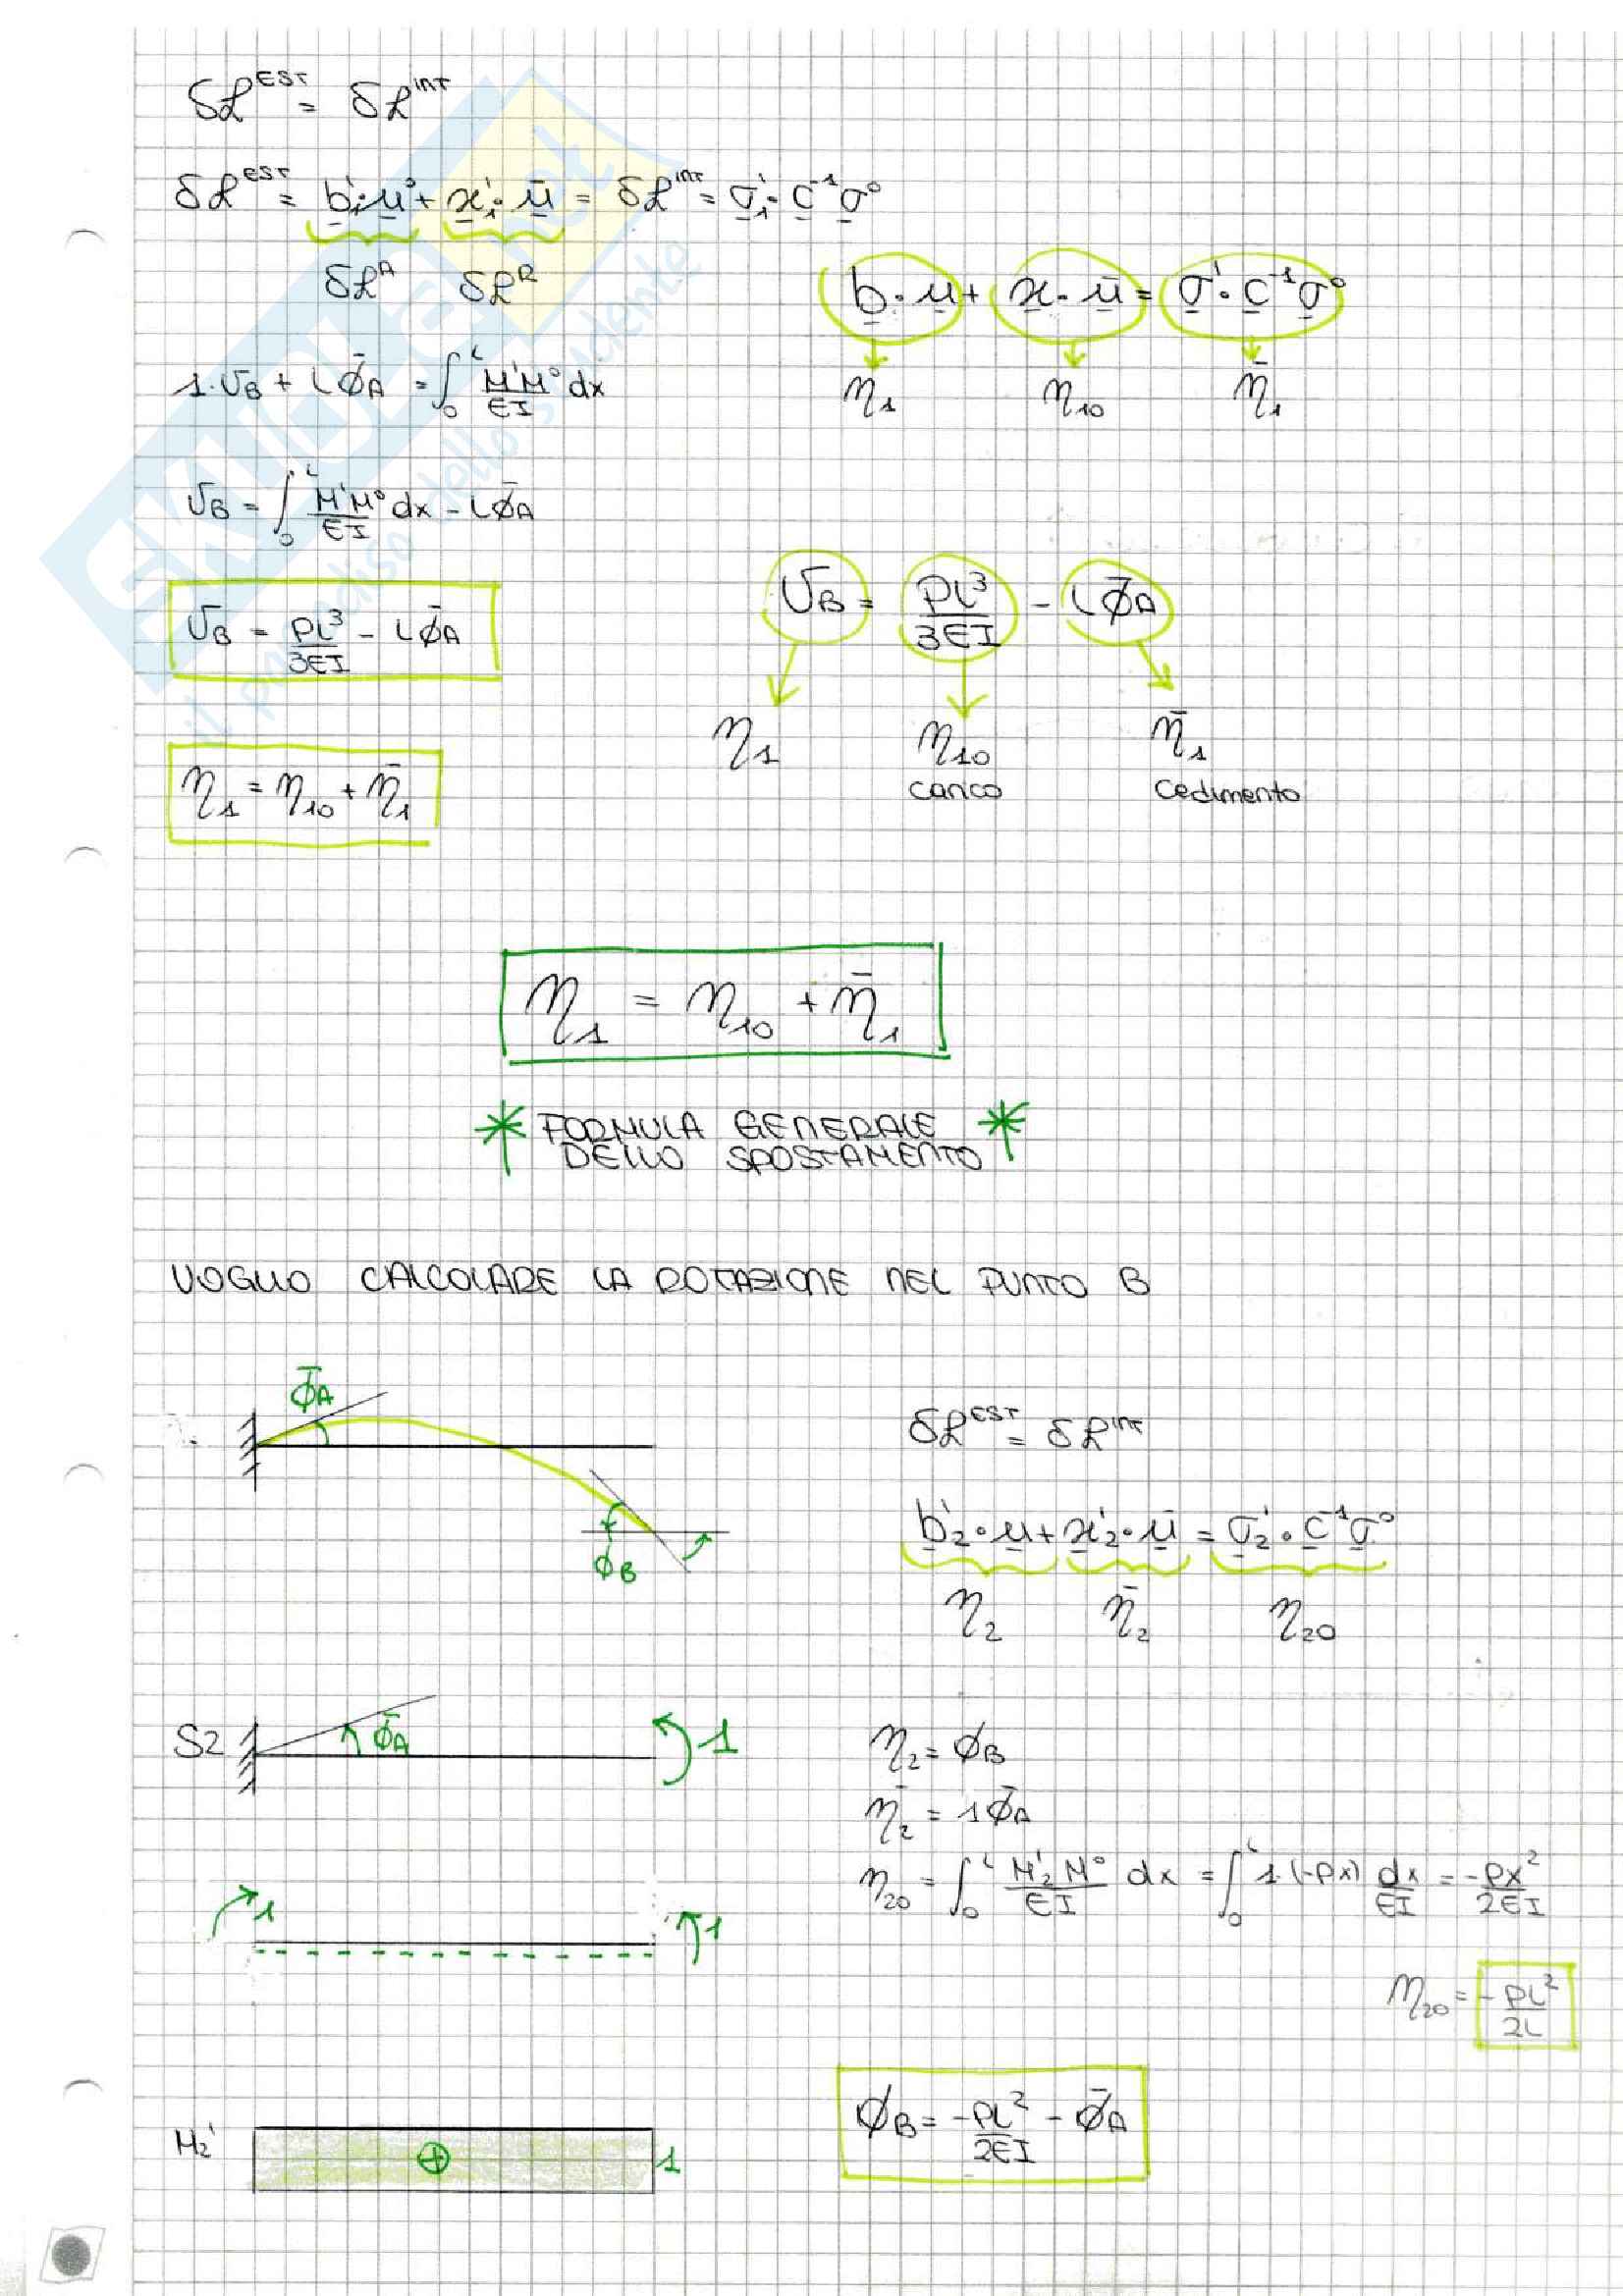 δL^EST = δL^INT
δL^EST = b'₁·u° + x'₁·ū = δL^INT = σ'₁·C⁻¹σ°
δL^A δL^R
b·u + x·ū = σ'·C⁻¹σ°
η₁ η₁₀ η̄₁
1·v_B + lφ̄_A = ∫₀^l M'M°/EI dx
v_B = ∫₀^l M'M°/EI dx - lφ̄_A
v_B = Pl³/3EI - lφ̄_A
v_B = Pl³/3EI - lφ̄_A
η₁ η₁₀ η̄₁
carico cedimento
η₁ = η₁₀ + η̄₁
η₁ = η₁₀ + η̄₁
* FORMULA GENERALE *
DELLO SPOSTAMENTO
VOGLIO CALCOLARE LA ROTAZIONE NEL PUNTO B
φ̄_A
φ_B
δL^EST = δL^INT
b'₂·u + x'₂·ū = σ'₂·C⁻¹σ°
η₂ η̄₂ η₂₀
S2 φ̄_A 1
η₂ = φ_B
η̄₂ = 1φ̄_A
η₂₀ = ∫₀^l M'₂M°/EI dx = ∫₀^l 1·(-Px) dx/EI = -Px²/2EI
1 1
η₂₀ = -Pl²/2L
M₂' ⊕ 1
φ_B = -Pl²/2EI - φ̄_A
SKUOLA.net
il paradiso dello studente